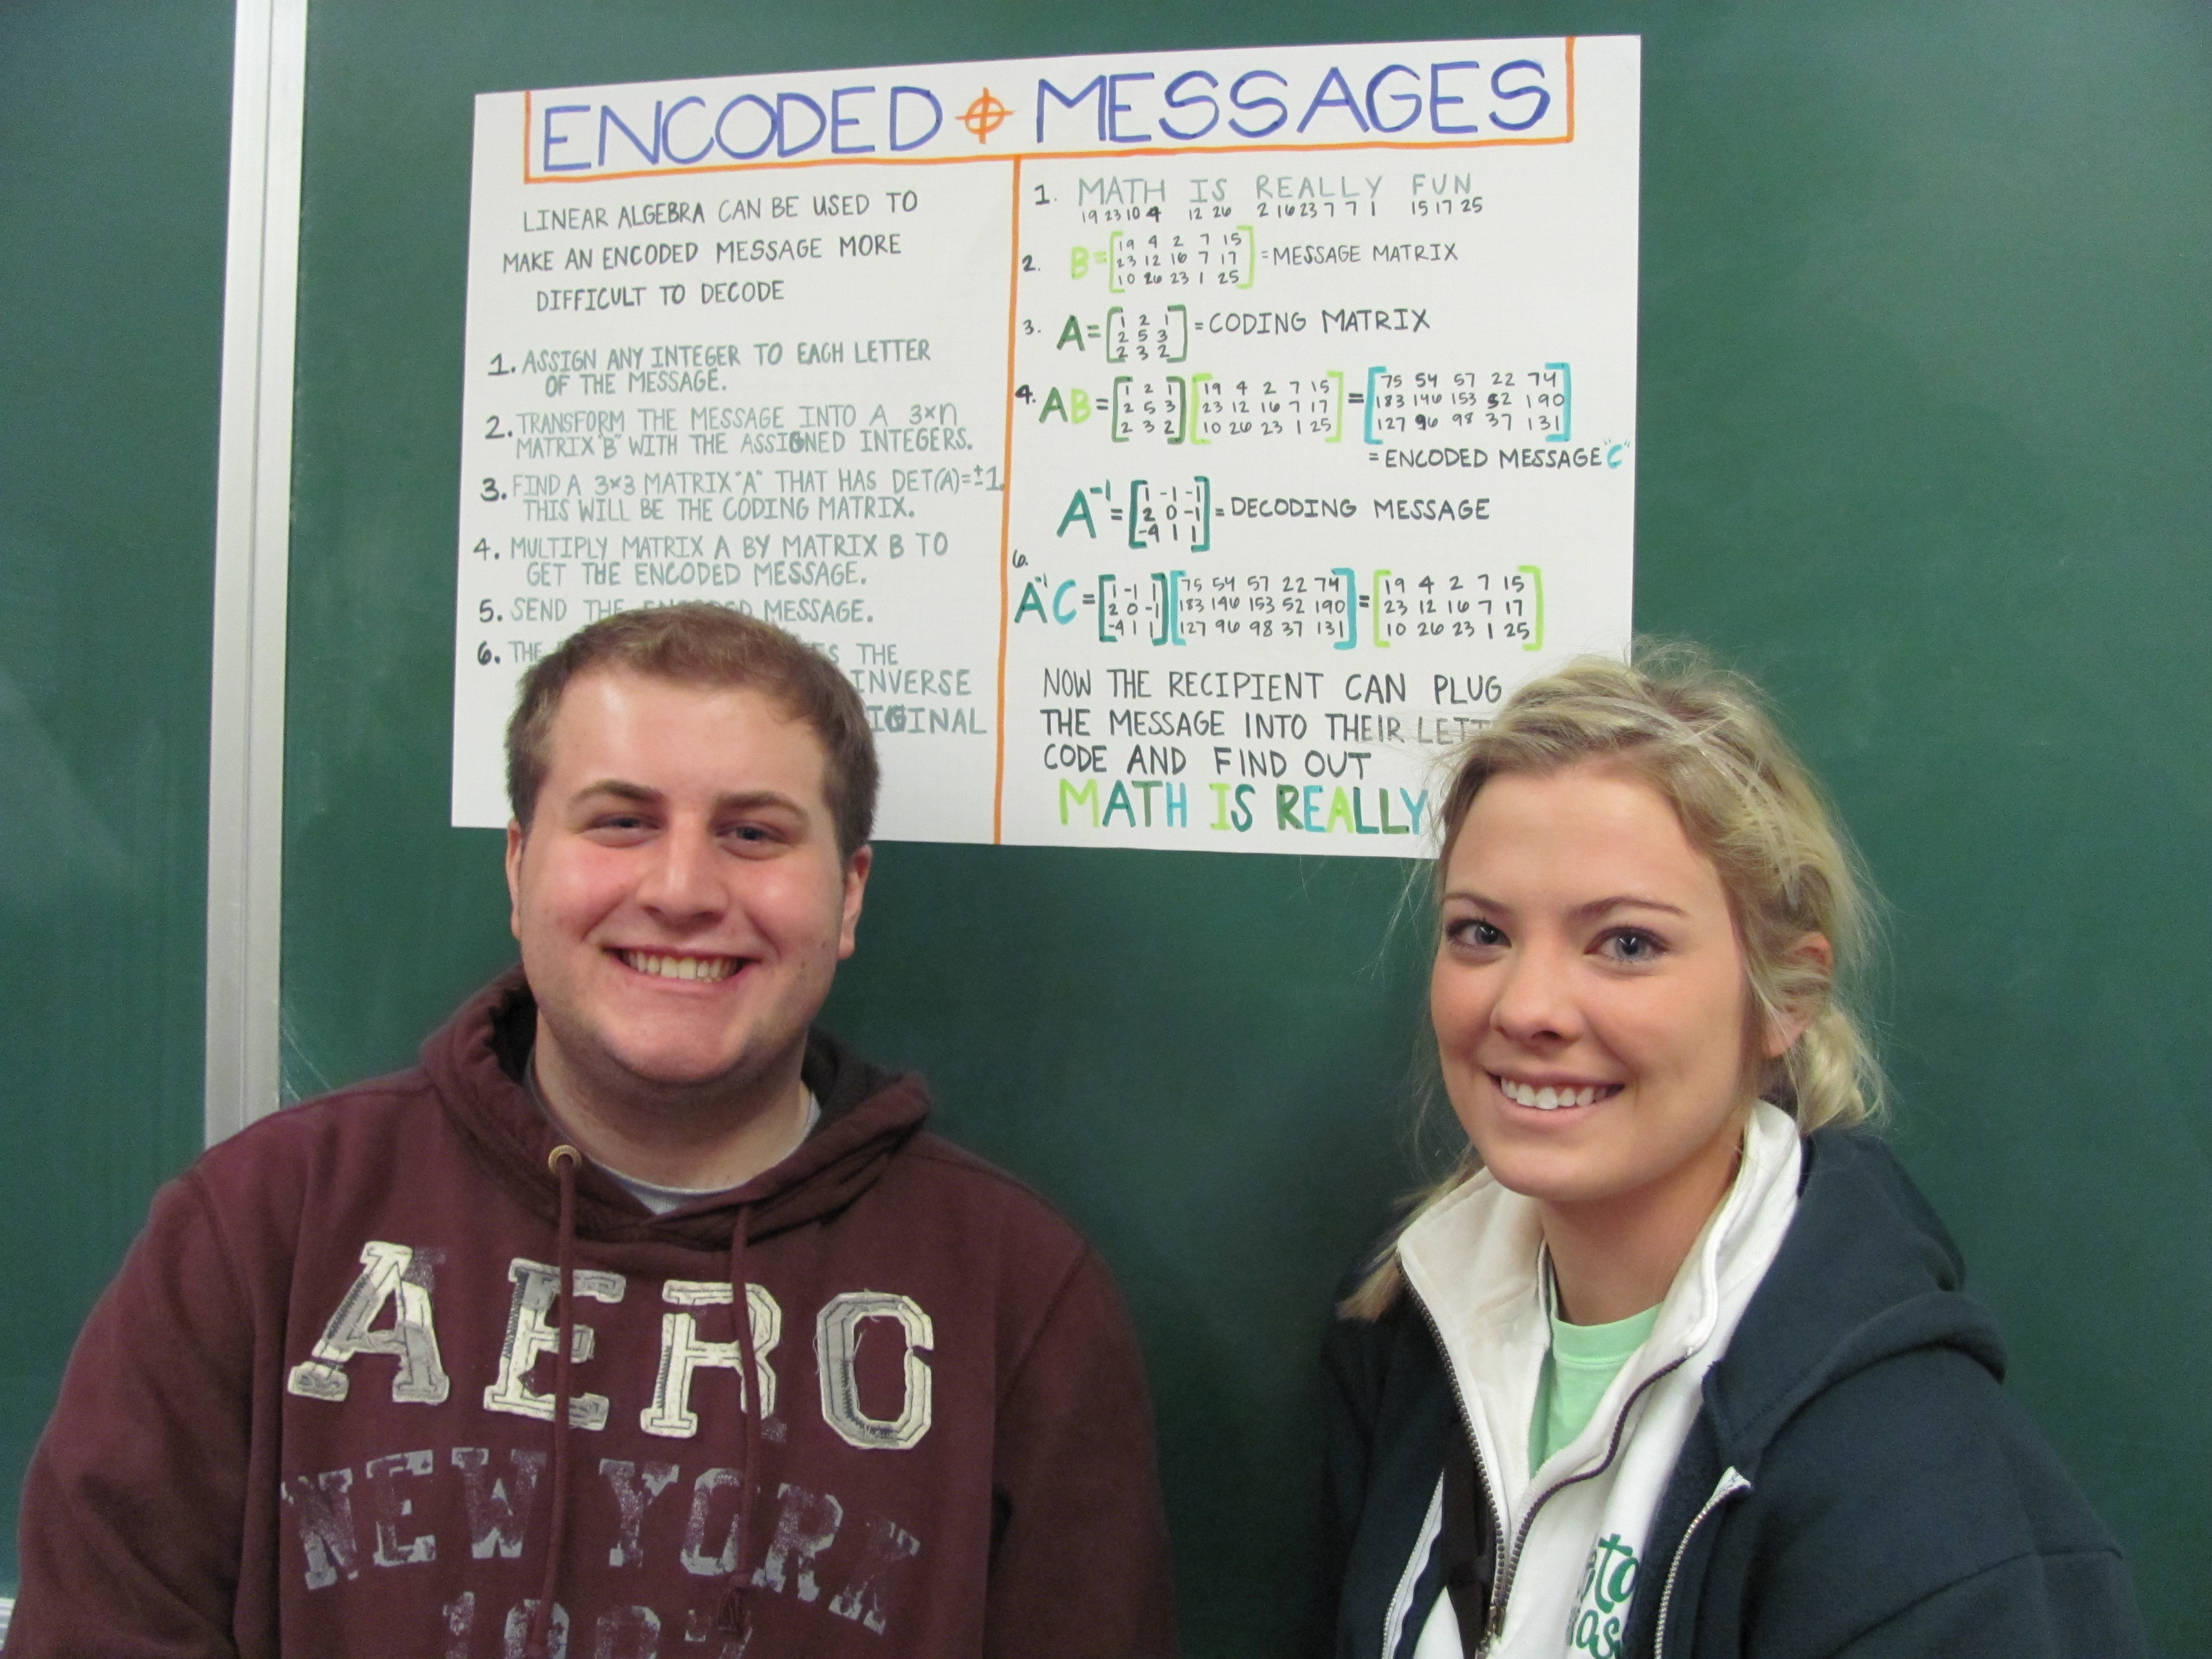 ENCODED MESSAGES
LINEAR ALGEBRA CAN BE USED TO
MAKE AN ENCODED MESSAGE MORE
DIFFICULT TO DECODE
1. ASSIGN ANY INTEGER TO EACH LETTER
OF THE MESSAGE.
2. TRANSFORM THE MESSAGE INTO A 3×n
MATRIX "B" WITH THE ASSIGNED INTEGERS.
3. FIND A 3×3 MATRIX "A" THAT HAS DET(A)=±1.
THIS WILL BE THE CODING MATRIX.
4. MULTIPLY MATRIX A BY MATRIX B TO
GET THE ENCODED MESSAGE.
5. SEND THE ENCODED MESSAGE.
6. THE THE
INVERSE
1. MATH IS REALLY FUN
19 23 10 4 12 26 2 16 23 7 7 1 15 17 25
2. B= [19 4 2 7 15] = MESSAGE MATRIX
23 12 16 7 17
10 26 23 1 25
3. A= [1 2 1] = CODING MATRIX
2 5 3
2 3 2
4. AB= [1 2 1] [19 4 2 7 15] = [75 54 57 22 74]
2 5 3 23 12 16 7 17 183 146 153 52 190
2 3 2 10 26 23 1 25 127 96 98 37 131
= ENCODED MESSAGE "C"
A⁻¹= [1 -1 -1] = DECODING MESSAGE
2 0 -1
-4 1 1
6.
A⁻¹C= [1 -1 1] [75 54 57 22 74] = [19 4 2 7 15]
2 0 -1 183 146 153 52 190 23 12 16 7 17
-4 1 1 127 96 98 37 131 10 26 23 1 25
NOW THE RECIPIENT CAN PLUG
THE MESSAGE INTO THEIR
CODE AND FIND OUT
MATH IS REALLY
AERO
NEW YORK